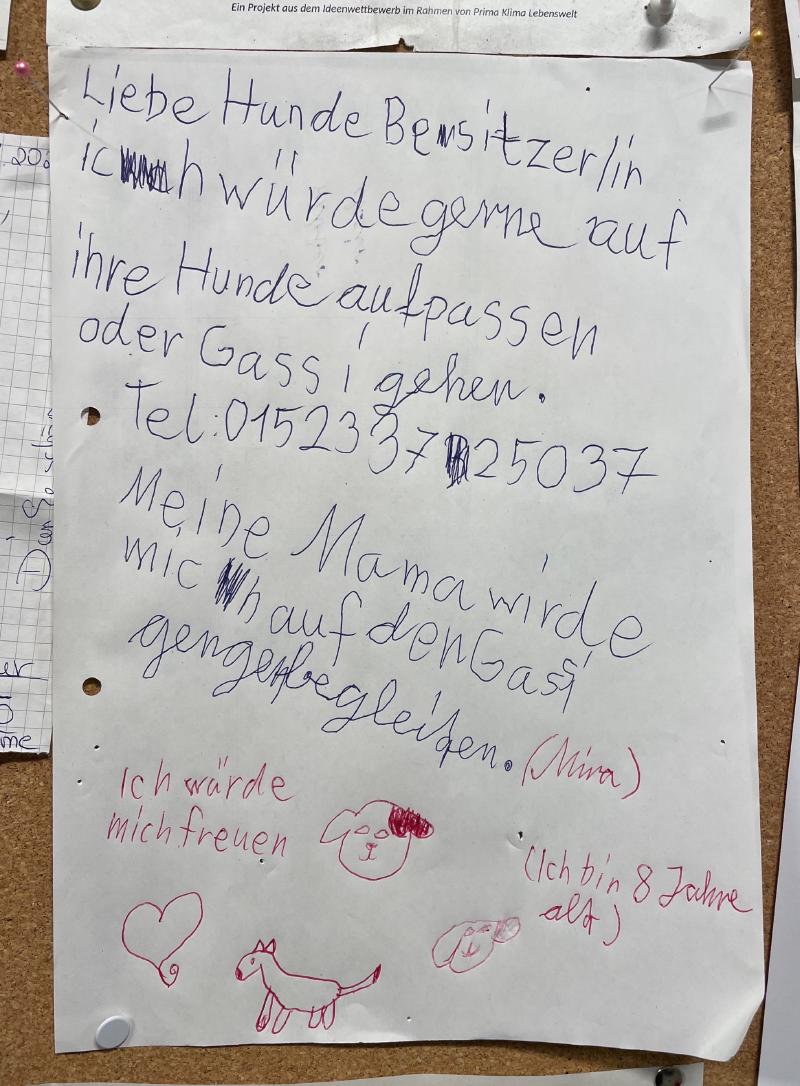 Ein Projekt aus dem Ideenwettbewerb im Rahmen von Prima Klima Lebenswelt
Liebe Hunde Besitzer/in
ich würde gerne auf
ihre Hunde aufpassen
oder Gassi gehen.
Tel.:015233725037
Meine Mama wirde
mich auf den Gassi
gengen begleiten. (Mira)
Ich würde
mich freuen
(Ich bin 8 Jahre
alt)